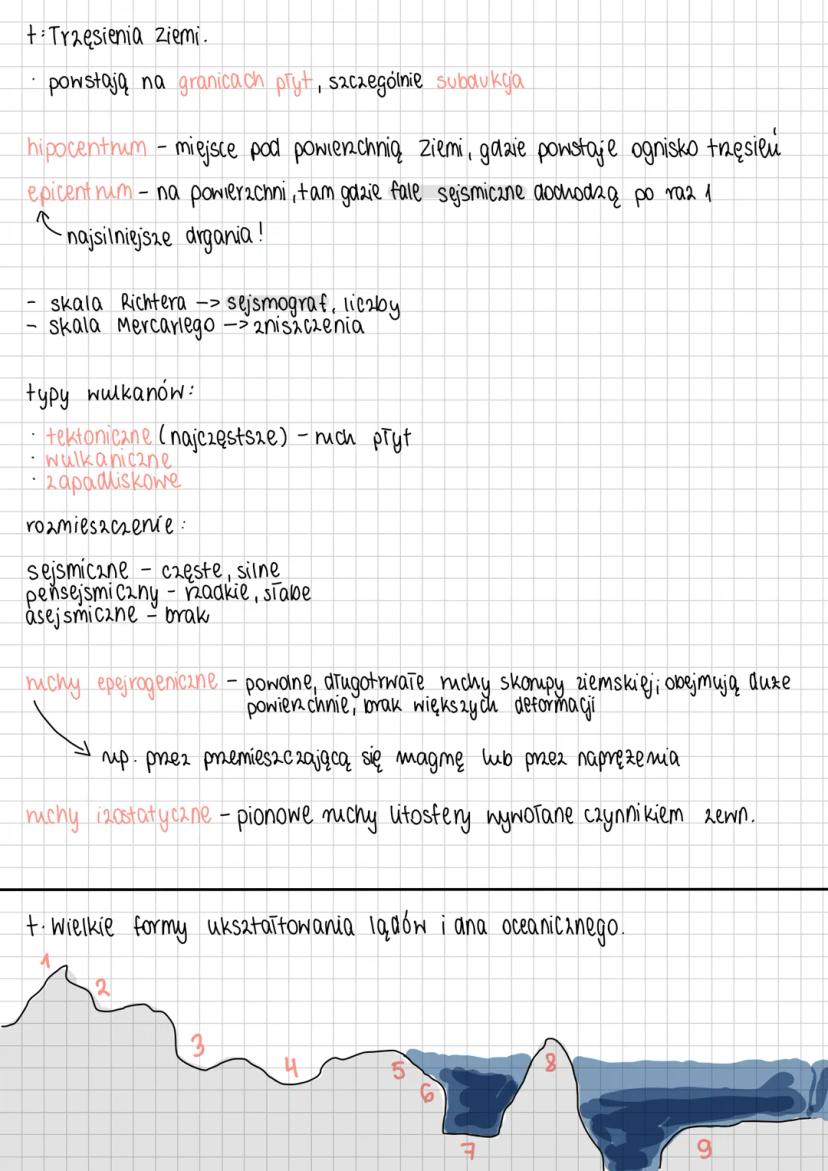 t: Trzęsienia Ziemi.
· powstają na granicach płyt, szczególnie subdukcja
hipocentrum - miejsce pod powierzchnią Ziemi, gdzie powstaje ognisko trzęsień
epicentrum - na powierzchni, tam gdzie fale sejsmiczne dochodzą po raz 1
najsilniejsze drgania!
- skala Richtera -> sejsmograf, liczby
- skala Mercarlego -> zniszczenia
typy wulkanów:
· tektoniczne (najczęstsze) - ruch płyt
· wulkaniczne
· zapadliskowe
rozmieszczenie:
sejsmiczne - częste, silne
pensejsmiczny - rzadkie, słabe
asejsmiczne - brak
ruchy epejrogeniczne - powolne, długotrwałe ruchy skorupy ziemskiej; obejmują duże
powierzchnie, brak większych deformacji
np. przez przemieszczającą się magmę lub przez naprężenia
ruchy izostatyczne - pionowe ruchy litosfery wywołane czynnikiem zewn.
t. Wielkie formy ukształtowania lądów i dna oceanicznego.
1
2
3
4
5
6
7
8
9